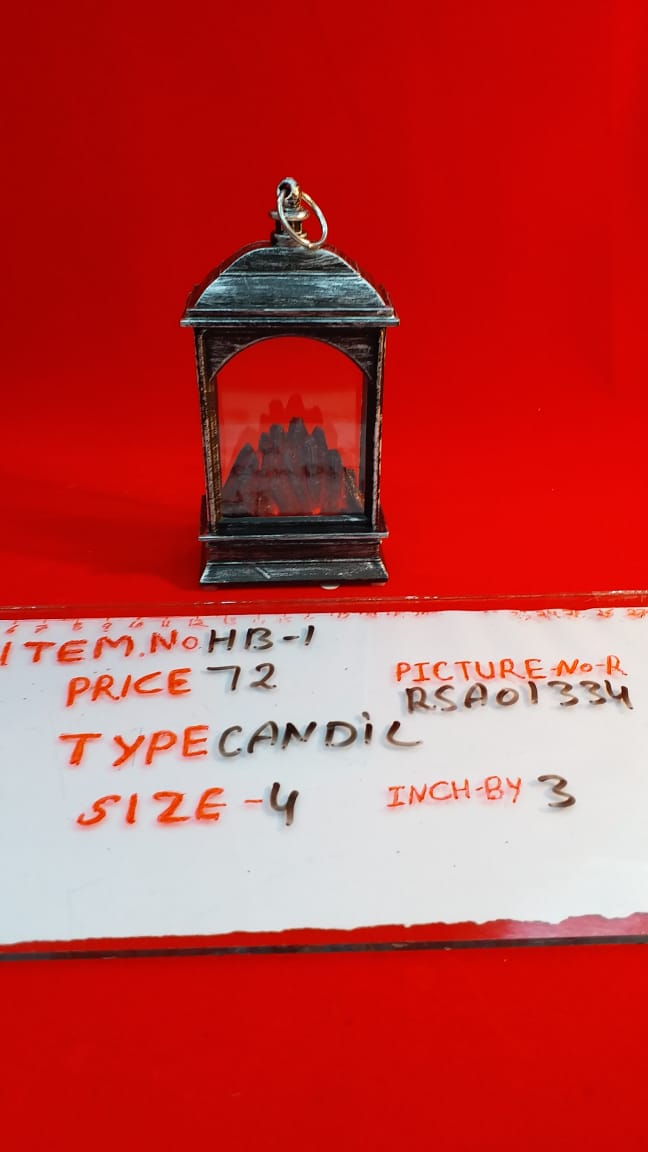 ITEM.No HB-1
PRICE 72
PICTURE-No-R
RSA01334
TYPE CANDiL
SIZE-4 INCH-BY 3